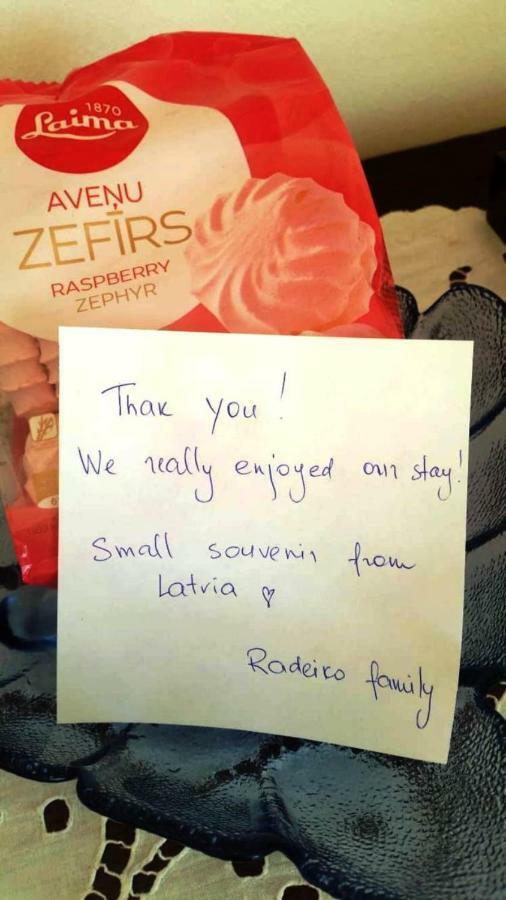 1870
Laima
AVEŅU
ZEFĪRS
RASPBERRY
ZEPHYR
Thak you!
We really enjoyed our stay!
Small souvenir from
Latvia ♡
Radeiko family